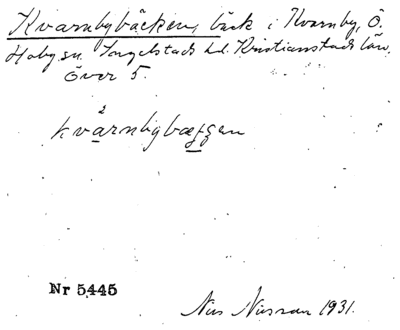 Kvarnbybäcken, bäck i Kvarnby, Ö.
Hoby sn. Ingelstads hd. Kristianstads län,
över 5.
2
kvårnbybæggen
Nr 5445
Nils Nilsson 1931.